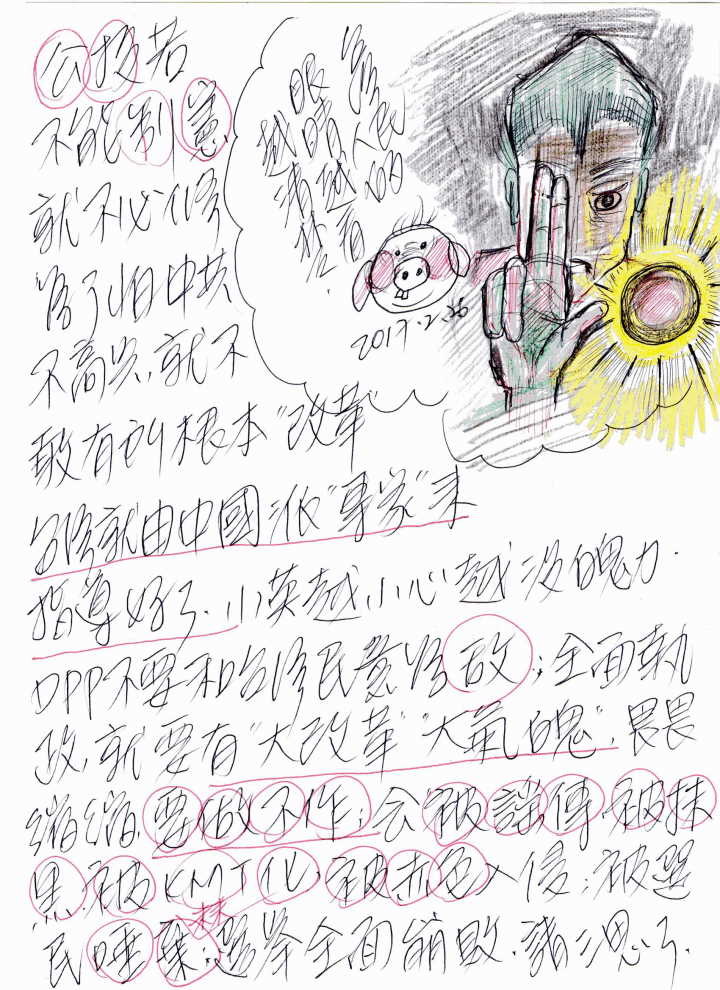 公投若
不能制憲
就不必修
為了怕中共
不高興.就不
敢有到根本"改革"
台灣就由中國派"專家"來
指導好了.小英越小心越沒魄力.
DPP不要和台灣民意為敵;全面執
政,就要有"大改革""大氣魄",畏畏
縮縮,要做不作;会被謠傳.被抹
黑.被KMT化.被赤色入侵;被選
民唾棄;選举全面崩敗.請三思了.
台灣人民的
眼睛越看
越清楚.
2017.2.26